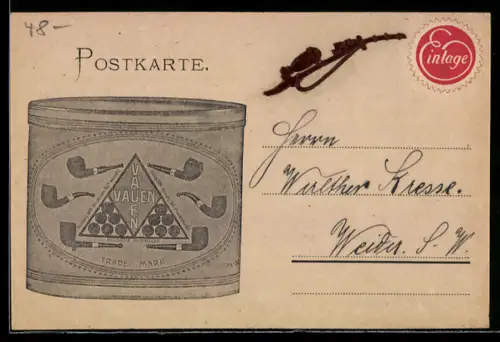 48-
POSTKARTE.
Einlage
VAUEN
VAUEN
TRADE MARK
Herrn
Walther Kresse.
S.-W.